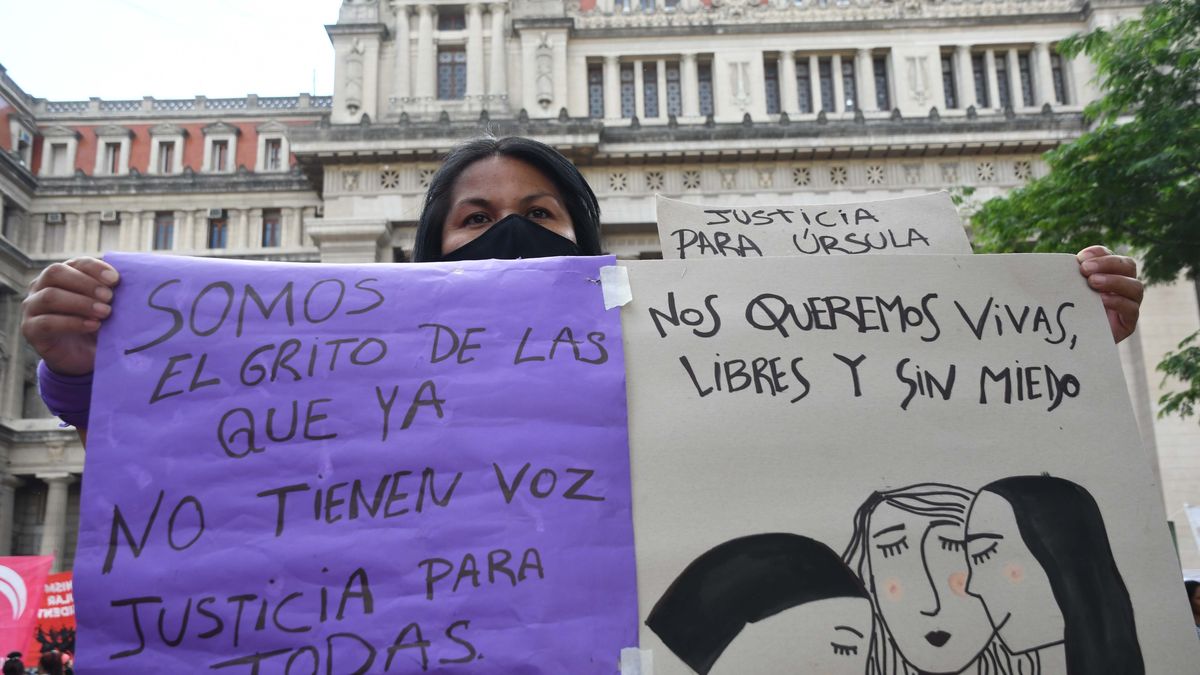 SOMOS
EL GRITO DE LAS
QUE YA
NO TIENEN VOZ
JUSTICIA PARA
TODAS.
JUSTICIA
PARA ÚRSULA
NOS QUEREMOS VIVAS,
LIBRES Y SIN MIEDO